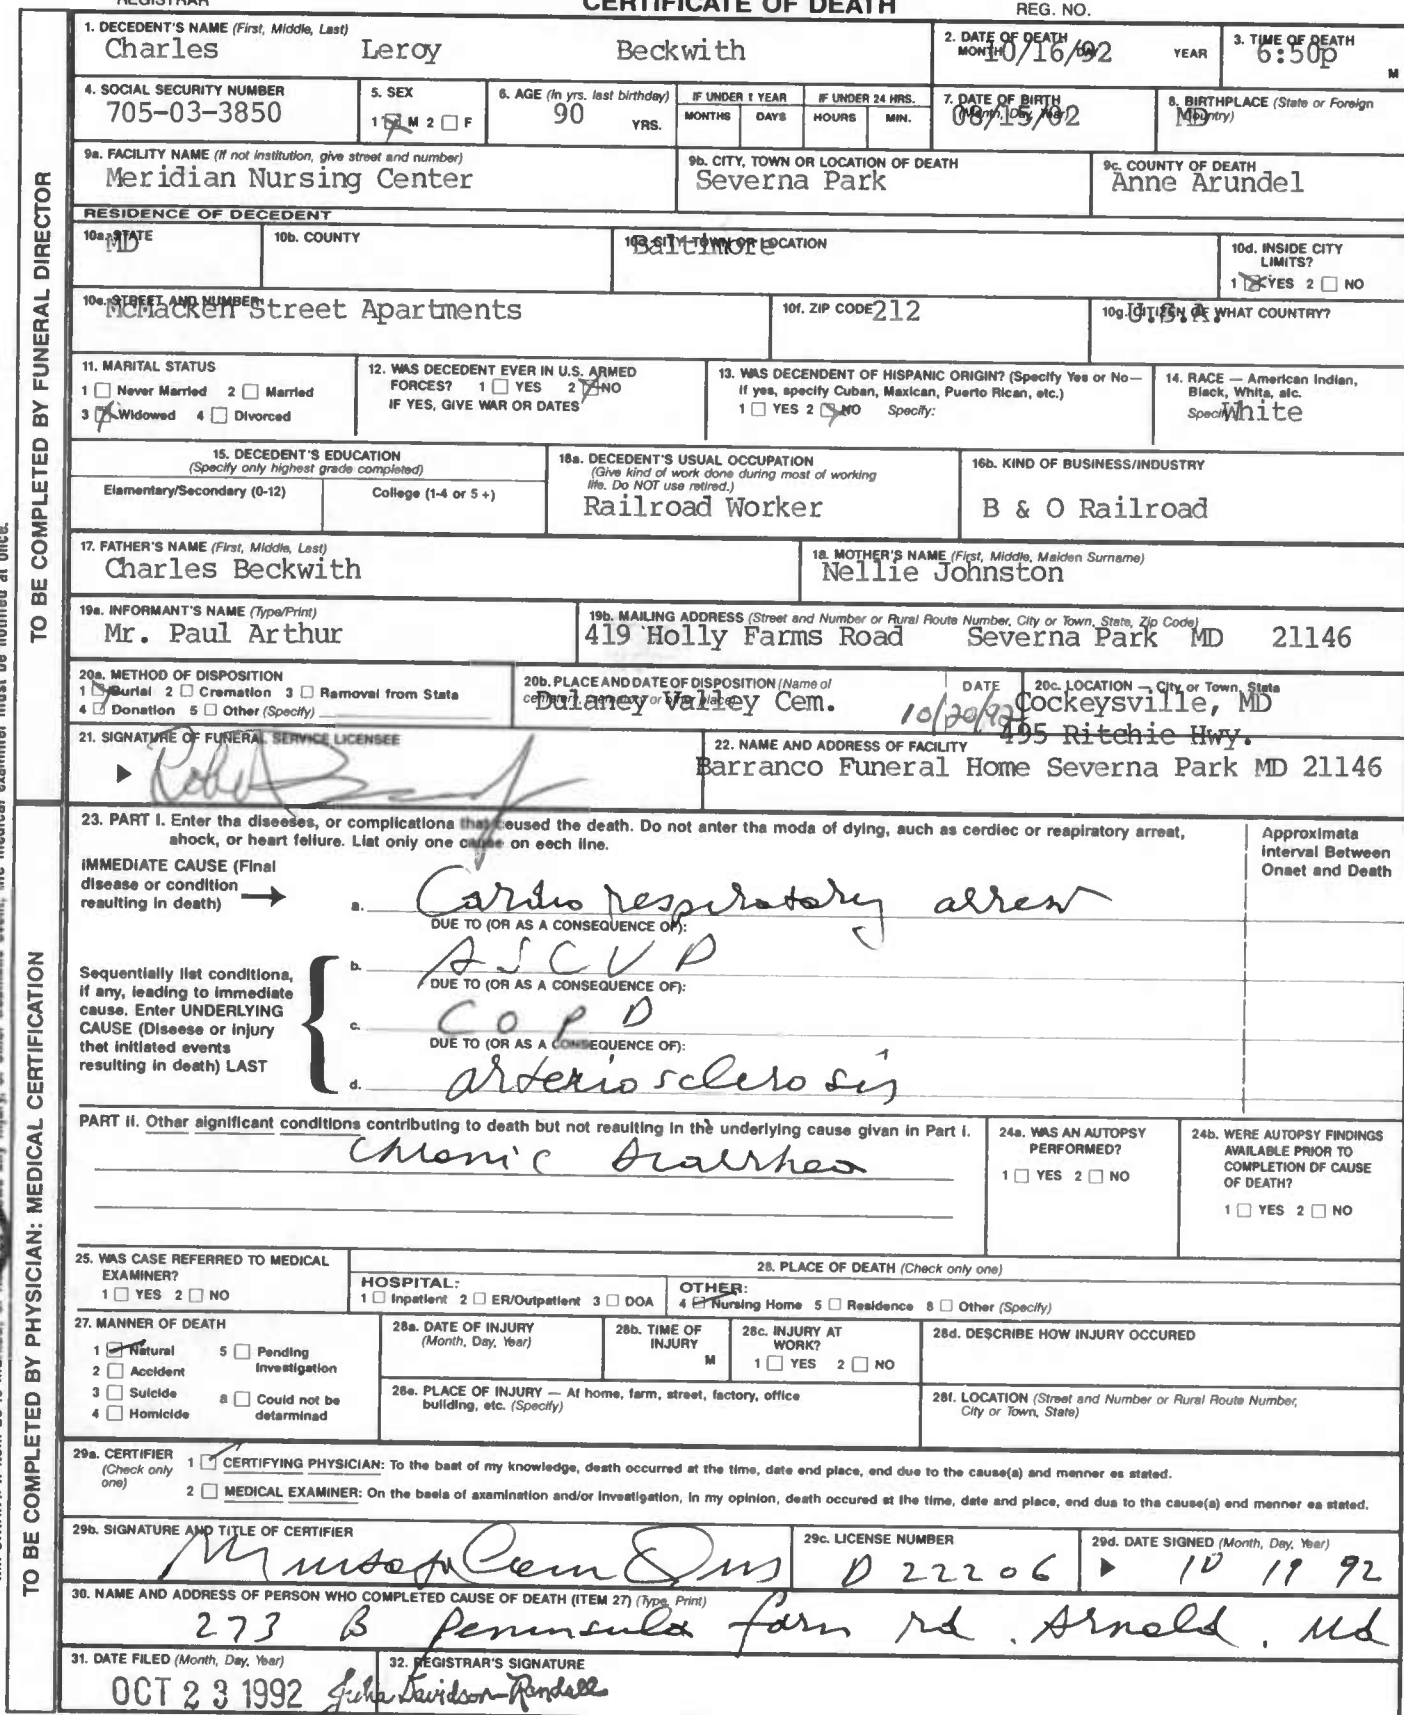 REGISTRAR CERTIFICATE OF DEATH REG. NO.
1. DECEDENT'S NAME (First, Middle, Last) 2. DATE OF DEATH 3. TIME OF DEATH
Charles Leroy Beckwith MONTH DAY YEAR 10/16/92 6:50p M
4. SOCIAL SECURITY NUMBER 5. SEX 6. AGE (In yrs. last birthday) IF UNDER 1 YEAR IF UNDER 24 HRS. 7. DATE OF BIRTH (Month, Day, Year) 8. BIRTHPLACE (State or Foreign Country)
705-03-3850 1 M 2 F 90 YRS. MONTHS DAYS HOURS MIN. 08/15/02 MD
9a. FACILITY NAME (If not institution, give street and number) 9b. CITY, TOWN OR LOCATION OF DEATH 9c. COUNTY OF DEATH
Meridian Nursing Center Severna Park Anne Arundel
RESIDENCE OF DECEDENT
10a. STATE 10b. COUNTY 10c. CITY, TOWN OR LOCATION 10d. INSIDE CITY LIMITS?
MD Baltimore 1 YES 2 NO
10e. STREET AND NUMBER 10f. ZIP CODE 212 10g. CITIZEN OF WHAT COUNTRY?
McMacken Street Apartments U.S.A.
11. MARITAL STATUS
1 Never Married 2 Married
3 Widowed 4 Divorced
12. WAS DECEDENT EVER IN U.S. ARMED
FORCES? 1 YES 2 NO
IF YES, GIVE WAR OR DATES
13. WAS DECENDENT OF HISPANIC ORIGIN? (Specify Yes or No—
If yes, specify Cuban, Mexican, Puerto Rican, etc.)
1 YES 2 NO Specify:
14. RACE — American Indian,
Black, White, etc.
Specify White
15. DECEDENT'S EDUCATION
(Specify only highest grade completed)
Elementary/Secondary (0-12) College (1-4 or 5 +)
16a. DECEDENT'S USUAL OCCUPATION
(Give kind of work done during most of working
life. Do NOT use retired.)
Railroad Worker
16b. KIND OF BUSINESS/INDUSTRY
B & O Railroad
17. FATHER'S NAME (First, Middle, Last) 18. MOTHER'S NAME (First, Middle, Maiden Surname)
Charles Beckwith Nellie Johnston
19a. INFORMANT'S NAME (Type/Print) 19b. MAILING ADDRESS (Street and Number or Rural Route Number, City or Town, State, Zip Code)
Mr. Paul Arthur 419 Holly Farms Road Severna Park MD 21146
20a. METHOD OF DISPOSITION
1 Burial 2 Cremation 3 Removal from State
4 Donation 5 Other (Specify)
20b. PLACE AND DATE OF DISPOSITION (Name of
cemetery, crematory or other place)
Dulaney Valley Cem.
DATE 10/20/92
20c. LOCATION — City or Town, State
Cockeysville, MD
21. SIGNATURE OF FUNERAL SERVICE LICENSEE
22. NAME AND ADDRESS OF FACILITY 495 Ritchie Hwy.
Barranco Funeral Home Severna Park MD 21146
23. PART I. Enter the diseases, or complications that caused the death. Do not enter the mode of dying, such as cardiac or respiratory arrest,
shock, or heart failure. List only one cause on each line.
Approximate
Interval Between
Onset and Death
IMMEDIATE CAUSE (Final
disease or condition
resulting in death)
a. Cardio respiratory arrest
DUE TO (OR AS A CONSEQUENCE OF):
b. ASCVD
DUE TO (OR AS A CONSEQUENCE OF):
c. COPD
DUE TO (OR AS A CONSEQUENCE OF):
d. arteriosclerosis
Sequentially list conditions,
if any, leading to immediate
cause. Enter UNDERLYING
CAUSE (Disease or injury
that initiated events
resulting in death) LAST
PART II. Other significant conditions contributing to death but not resulting in the underlying cause given in Part I.
Chronic diarrhea
24a. WAS AN AUTOPSY
PERFORMED?
1 YES 2 NO
24b. WERE AUTOPSY FINDINGS
AVAILABLE PRIOR TO
COMPLETION OF CAUSE
OF DEATH?
1 YES 2 NO
25. WAS CASE REFERRED TO MEDICAL
EXAMINER?
1 YES 2 NO
26. PLACE OF DEATH (Check only one)
HOSPITAL:
1 Inpatient 2 ER/Outpatient 3 DOA
OTHER:
4 Nursing Home 5 Residence 6 Other (Specify)
27. MANNER OF DEATH
1 Natural 5 Pending
Investigation
2 Accident
3 Suicide 6 Could not be
determined
4 Homicide
28a. DATE OF INJURY
(Month, Day, Year)
28b. TIME OF
INJURY
M
28c. INJURY AT
WORK?
1 YES 2 NO
28d. DESCRIBE HOW INJURY OCCURED
28e. PLACE OF INJURY — At home, farm, street, factory, office
building, etc. (Specify)
28f. LOCATION (Street and Number or Rural Route Number,
City or Town, State)
29a. CERTIFIER
(Check only
one)
1 CERTIFYING PHYSICIAN: To the best of my knowledge, death occurred at the time, date and place, and due to the cause(s) and manner as stated.
2 MEDICAL EXAMINER: On the basis of examination and/or investigation, in my opinion, death occured at the time, date and place, and due to the cause(s) and manner as stated.
29b. SIGNATURE AND TITLE OF CERTIFIER 29c. LICENSE NUMBER 29d. DATE SIGNED (Month, Day, Year)
D 22206 10 19 92
30. NAME AND ADDRESS OF PERSON WHO COMPLETED CAUSE OF DEATH (ITEM 27) (Type, Print)
273 B Peninsula farm rd. Arnold. Md
31. DATE FILED (Month, Day, Year) 32. REGISTRAR'S SIGNATURE
OCT 23 1992 Julia Davidson-Randall
TO BE COMPLETED BY FUNERAL DIRECTOR
TO BE COMPLETED BY PHYSICIAN: MEDICAL CERTIFICATION